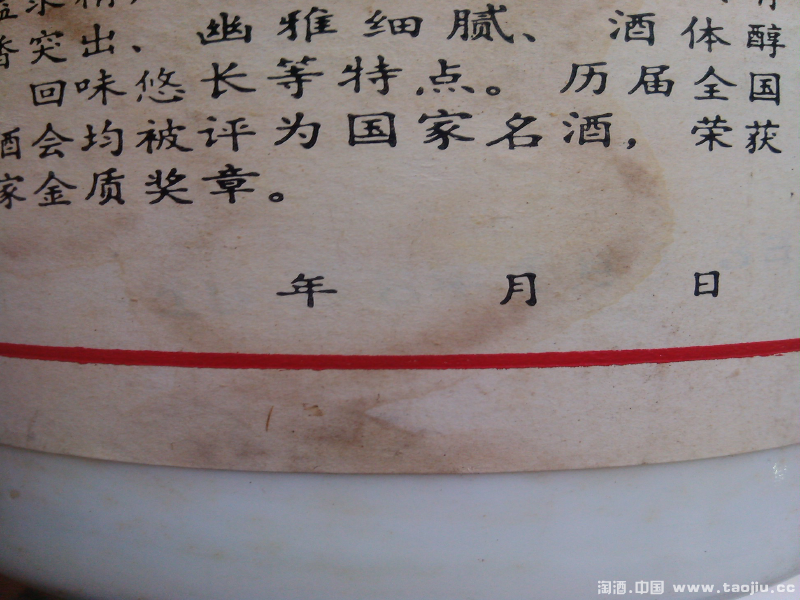 香突出、幽雅细腻、酒体醇
回味悠长等特点。历届全国
酒会均被评为国家名酒，荣获
家金质奖章。
年 月 日
淘酒.中国 www.taojiu.cc